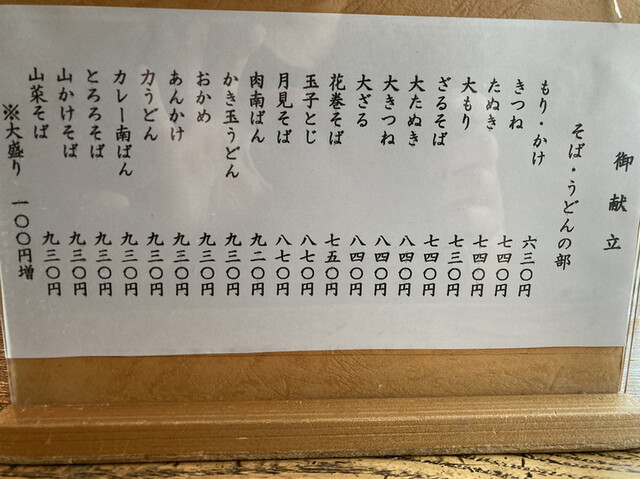 御献立
そば・うどんの部
もり・かけ 六三〇円
きつね 七四〇円
たぬき 七四〇円
大もり 七三〇円
ざるそば 七四〇円
大たぬき 八四〇円
大きつね 八四〇円
大ざる 八四〇円
花巻そば 七五〇円
玉子とじ 八七〇円
月見そば 八七〇円
肉南ばん 九二〇円
かき玉うどん 九三〇円
おかめ 九三〇円
あんかけ 九三〇円
力うどん 九三〇円
カレー南ばん 九三〇円
とろろそば 九三〇円
山かけそば 九三〇円
山菜そば 九三〇円
※大盛り 一〇〇円増